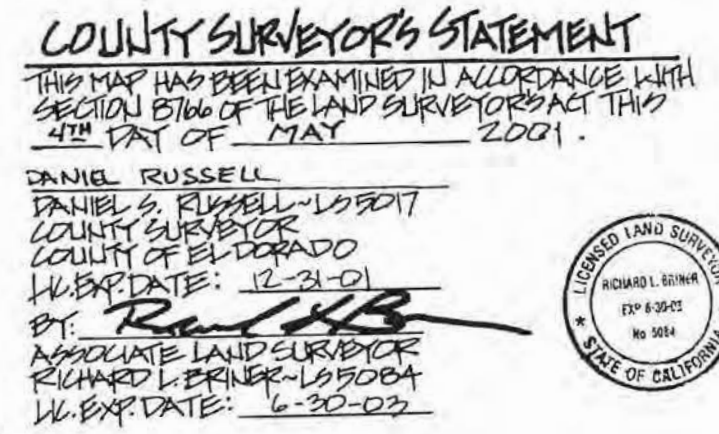 COUNTY SURVEYOR'S STATEMENT
THIS MAP HAS BEEN EXAMINED IN ACCORDANCE WITH
SECTION 8766 OF THE LAND SURVEYOR'S ACT THIS
4TH DAY OF MAY 2001.
DANIEL RUSSELL
DANIEL S. RUSSELL~LS 5017
COUNTY SURVEYOR
COUNTY OF EL DORADO
LIC. EXP. DATE: 12-31-01
BY:
ASSOCIATE LAND SURVEYOR
RICHARD L. BRINER~LS 5084
LIC. EXP. DATE: 6-30-03
LICENSED LAND SURVEYOR
RICHARD L. BRINER
EXP 6-30-03
No 5084
STATE OF CALIFORNIA